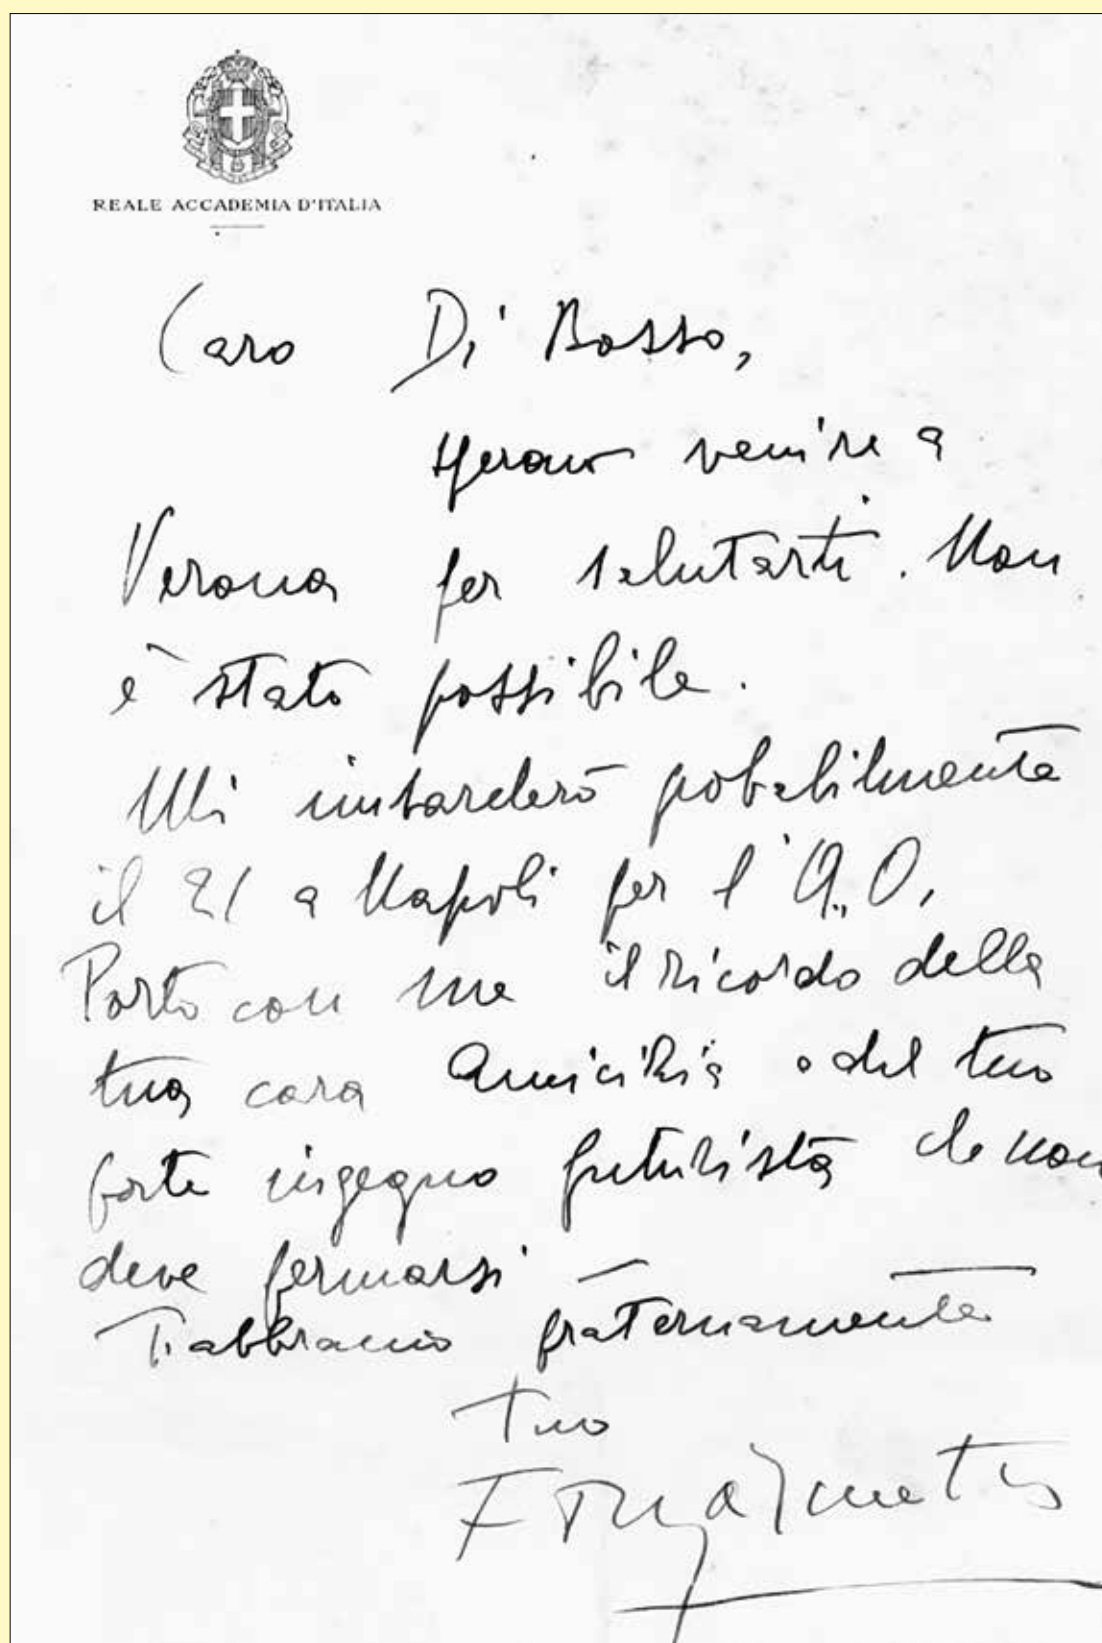 REALE ACCADEMIA D'ITALIA
Caro Di Bosso,
speravo venire a
Verona per salutarti. Non
è stato possibile.
Mi imbarcherò pobabilmente
il 21 a Napoli per l'A.O.
Porto con me il ricordo della
tua cara amicizia e del tuo
forte ingegno futurista che non
deve fermarsi
Ti abbraccio fraternamente
tuo
F T Marinetti